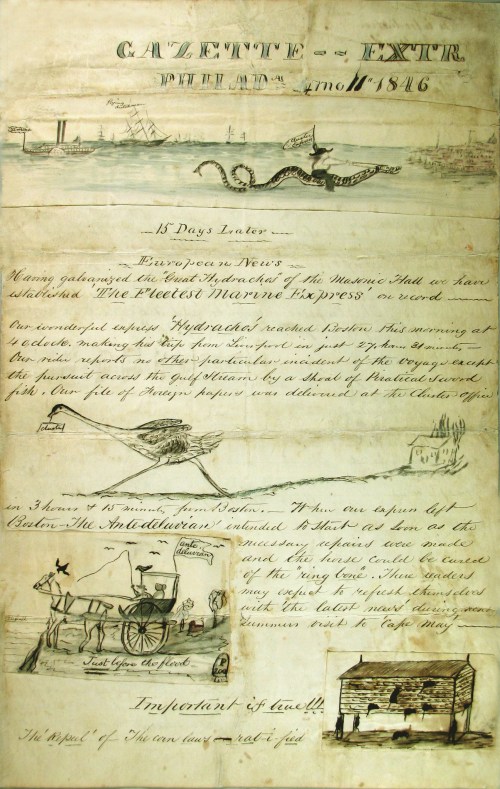 GAZETTE -- EXTR
PHILAD 11 1846
15 Days Later
European News
Having galvanized the "Great Hydrachos" of the Masonic Hall we have
established 'The Fleetest Marine Express' on record
Our wonderful express 'Hydrachos' reached Boston this morning at
4 oclock. making his trip from Liverpool in just 27 hours 31 minutes
Our rider reports no other particular incident of the voyage except
the pursuit across the Gulf Stream by a Shoal of Piratical Sword
fish. Our file of Foreign papers was delivered at the Cluster Office
in 3 hours & 15 minutes from Boston. When our express left
Boston The Antedeluvian' intended to start as soon as the
necessary repairs were made
and the horse could be cured
of the "ring bone. There readers
may expect to refresh themselves
with the latest news during
summer visit to Cape May
ante
deluvian
Just before the flood
Important if true!!!
The 'Repeal' of The corn laws rat-i-fied